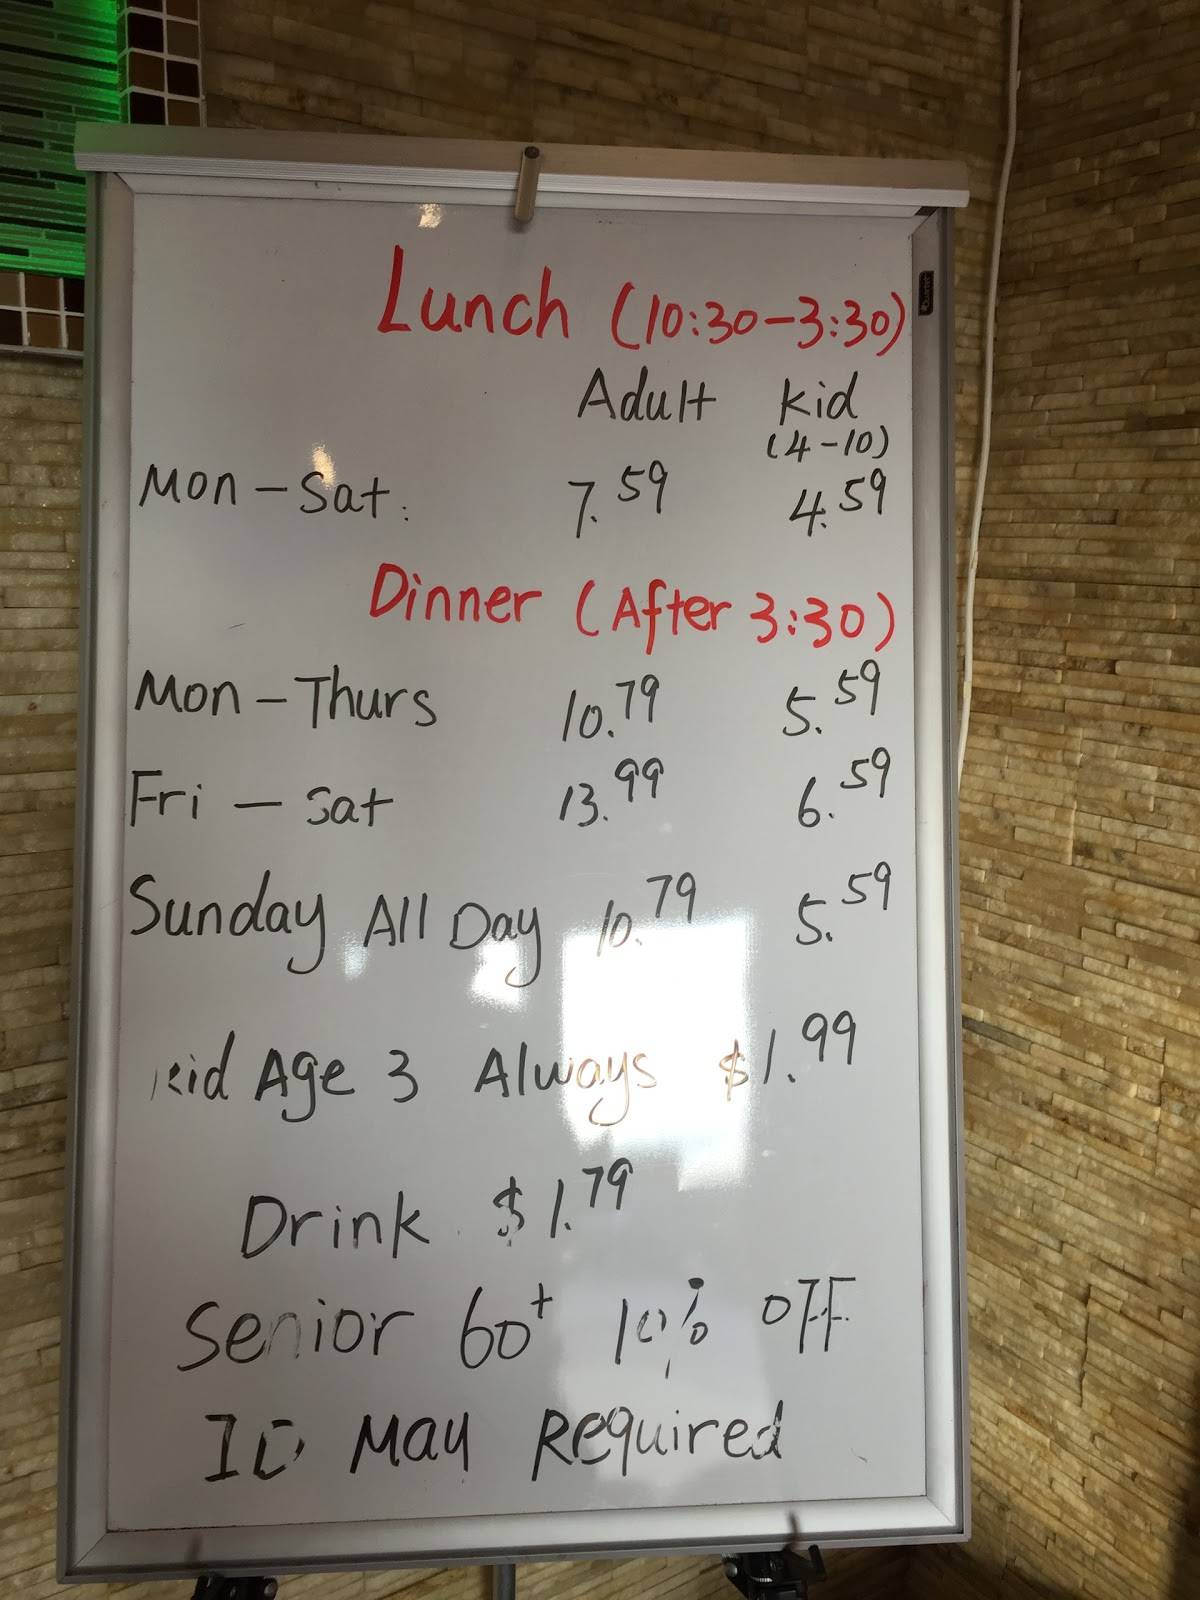 Lunch (10:30-3:30)
Adult Kid
(4-10)
Mon-Sat: 7.59 4.59
Dinner (After 3:30)
Mon-Thurs 10.79 5.59
Fri-Sat 13.99 6.59
Sunday All Day 10.79 5.59
Kid Age 3 Always $1.99
Drink $1.79
Senior 60+ 10% OFF
ID May Required